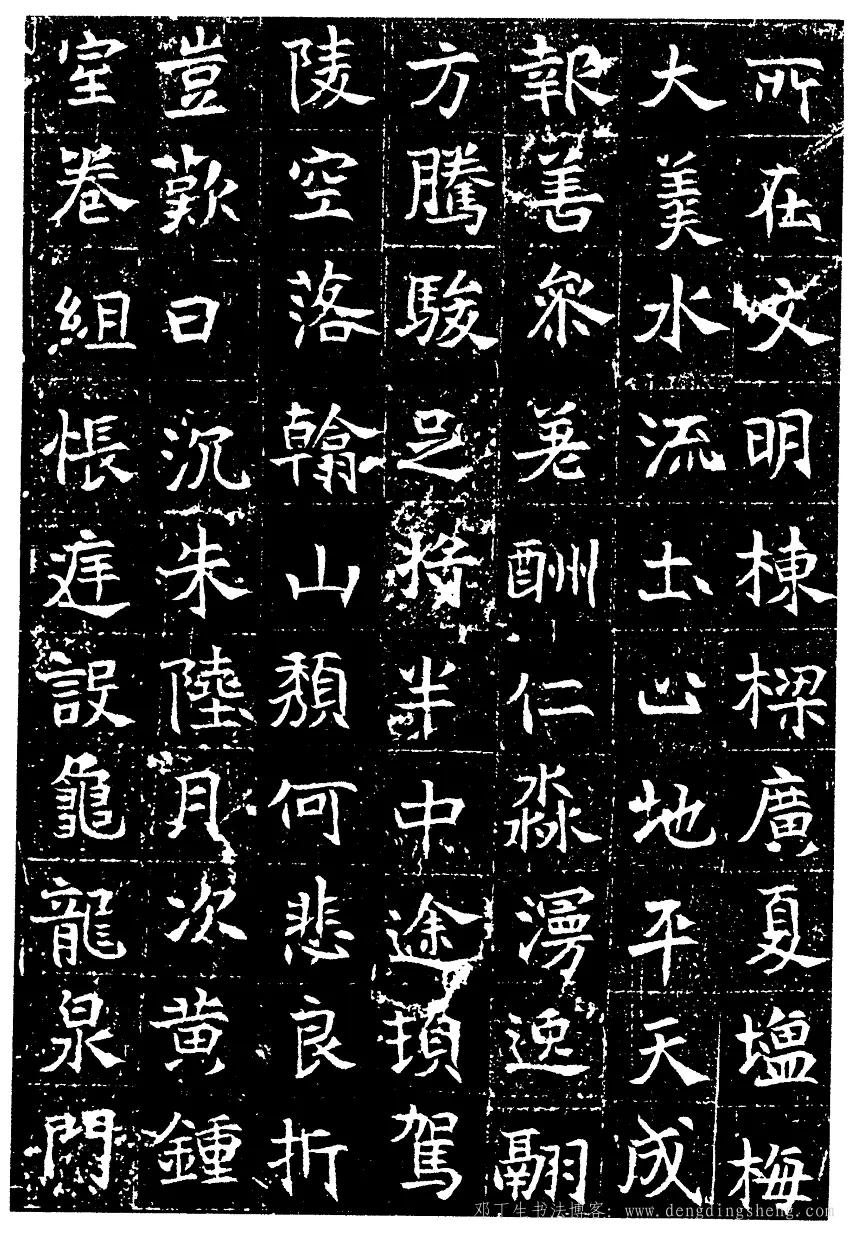 所在文明棟樑廣夏塩梅
大羹水流土止地平天成
報善參差酬仁淼漫逸翮
方騰駿足將半中途頓駕
陵空落翰山頹何悲良折
豈歎日沉朱陸月次黃鍾
室卷組帳庭設龜龍泉門
邓丁生书法博客: www.dengdingsheng.com